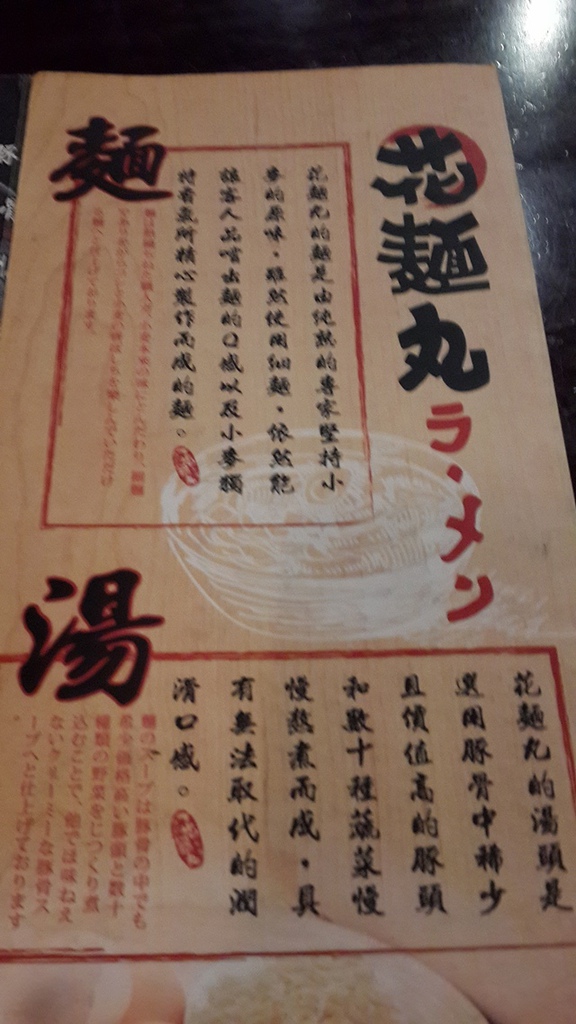 花麵丸
ラーメン
麵
花麵丸的麵是由純熟的專家堅持小
麥的原味，雖然使用細麵，依然能
讓客人品嚐出麵的口感以及小麥獨
特香氣所精心製作而成的麵。
湯
花麵丸的湯頭是
選用豚骨中稀少
且價值高的豚頭
和數十種蔬菜慢
慢熬煮而成，具
有無法取代的潤
滑口感。
麺のスープは豚骨の中でも
希少価格高い豚頭と数十
種類の野菜をじっくり煮
込むことで、他では味わえ
ないクリーミーな豚骨ス
ープへと仕上げております